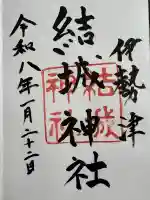 伊勢津
結城神社
結城神社
令和八年一月二十二日